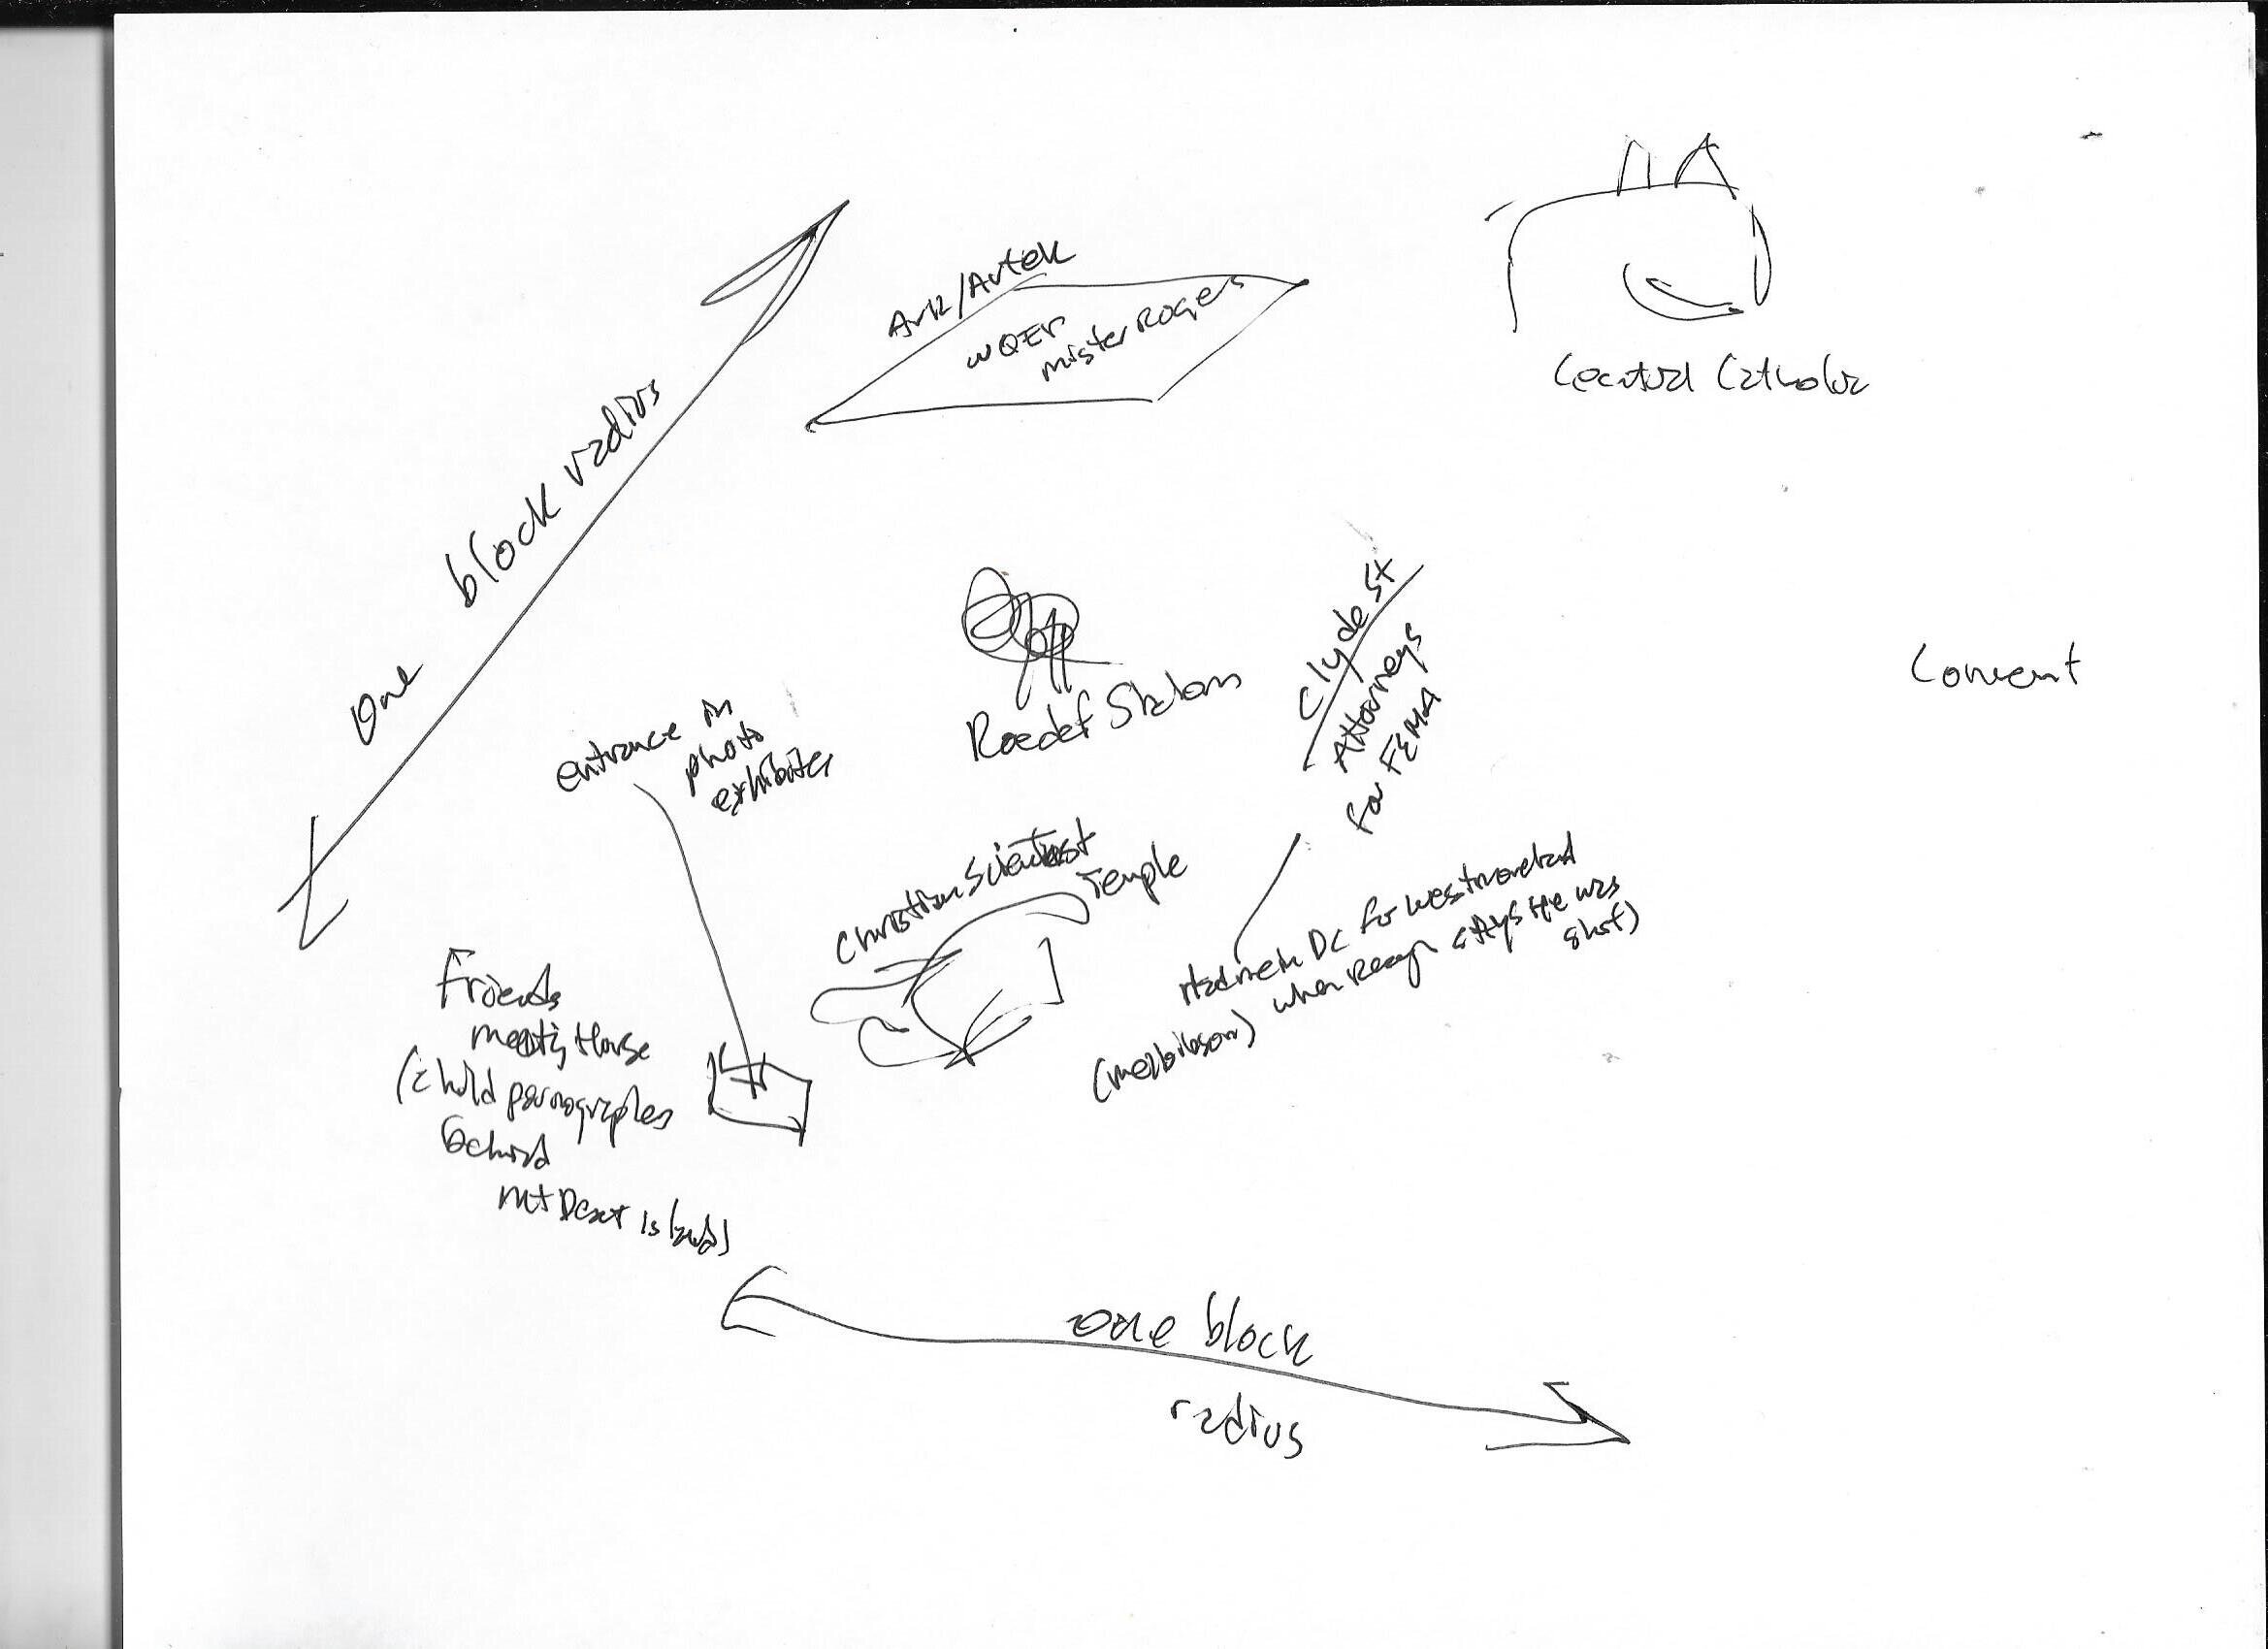 Ark/Avtek
WQED
mister Rogers
Central Catholic
one block radius
Clyde St
Attorneys
for FEMA
Convent
Roedef Shalom
entrance in
photo
exhibites
Christian Scientist
Temple
Had me in DC for westmoreland
when Reagn
(melbibson)
shot)
Friends
meeting House
(child pornographers
behind
mt Desert Island)
one block
radius